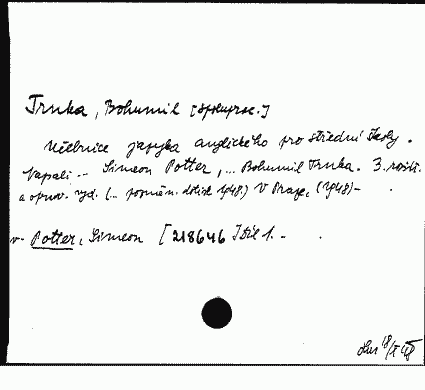 Trnka, Bohumil [spoluprac.]
Učebnice jazyka anglického pro střední školy.
Napsali .. Simeon Potter, ... Bohumil Trnka. 3. rozšíř.
a oprav. vyd. (.. pozměn. dotisk 1948.) V Praze, (1948) -
v. Potter, Simeon [218646] díl 1. -
18/X 48